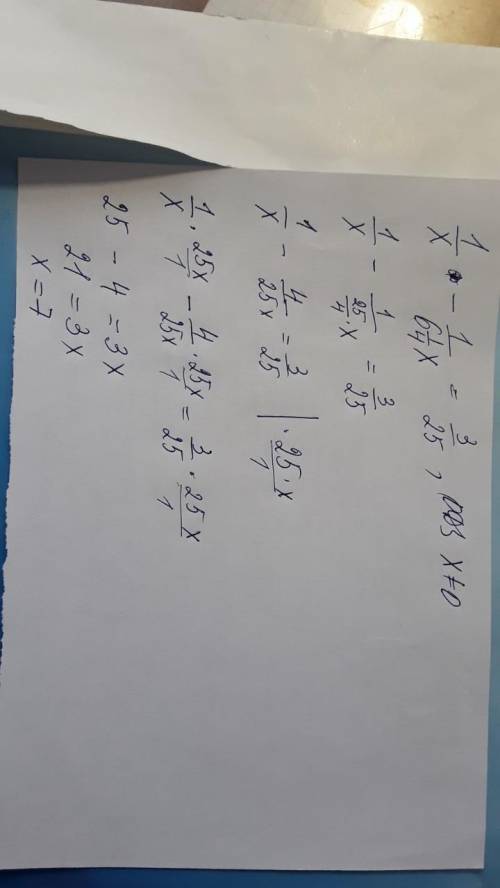 1/x - 1/(6 1/4 x) = 3/25, x≠0
1/x - 1/(25/4 · x) = 3/25
1/x - 4/25x = 3/25 | · 25·x/1
1/x · 25x/1 - 4/25x · 25x/1 = 3/25 · 25x/1
25 - 4 = 3x
21 = 3x
x = 7